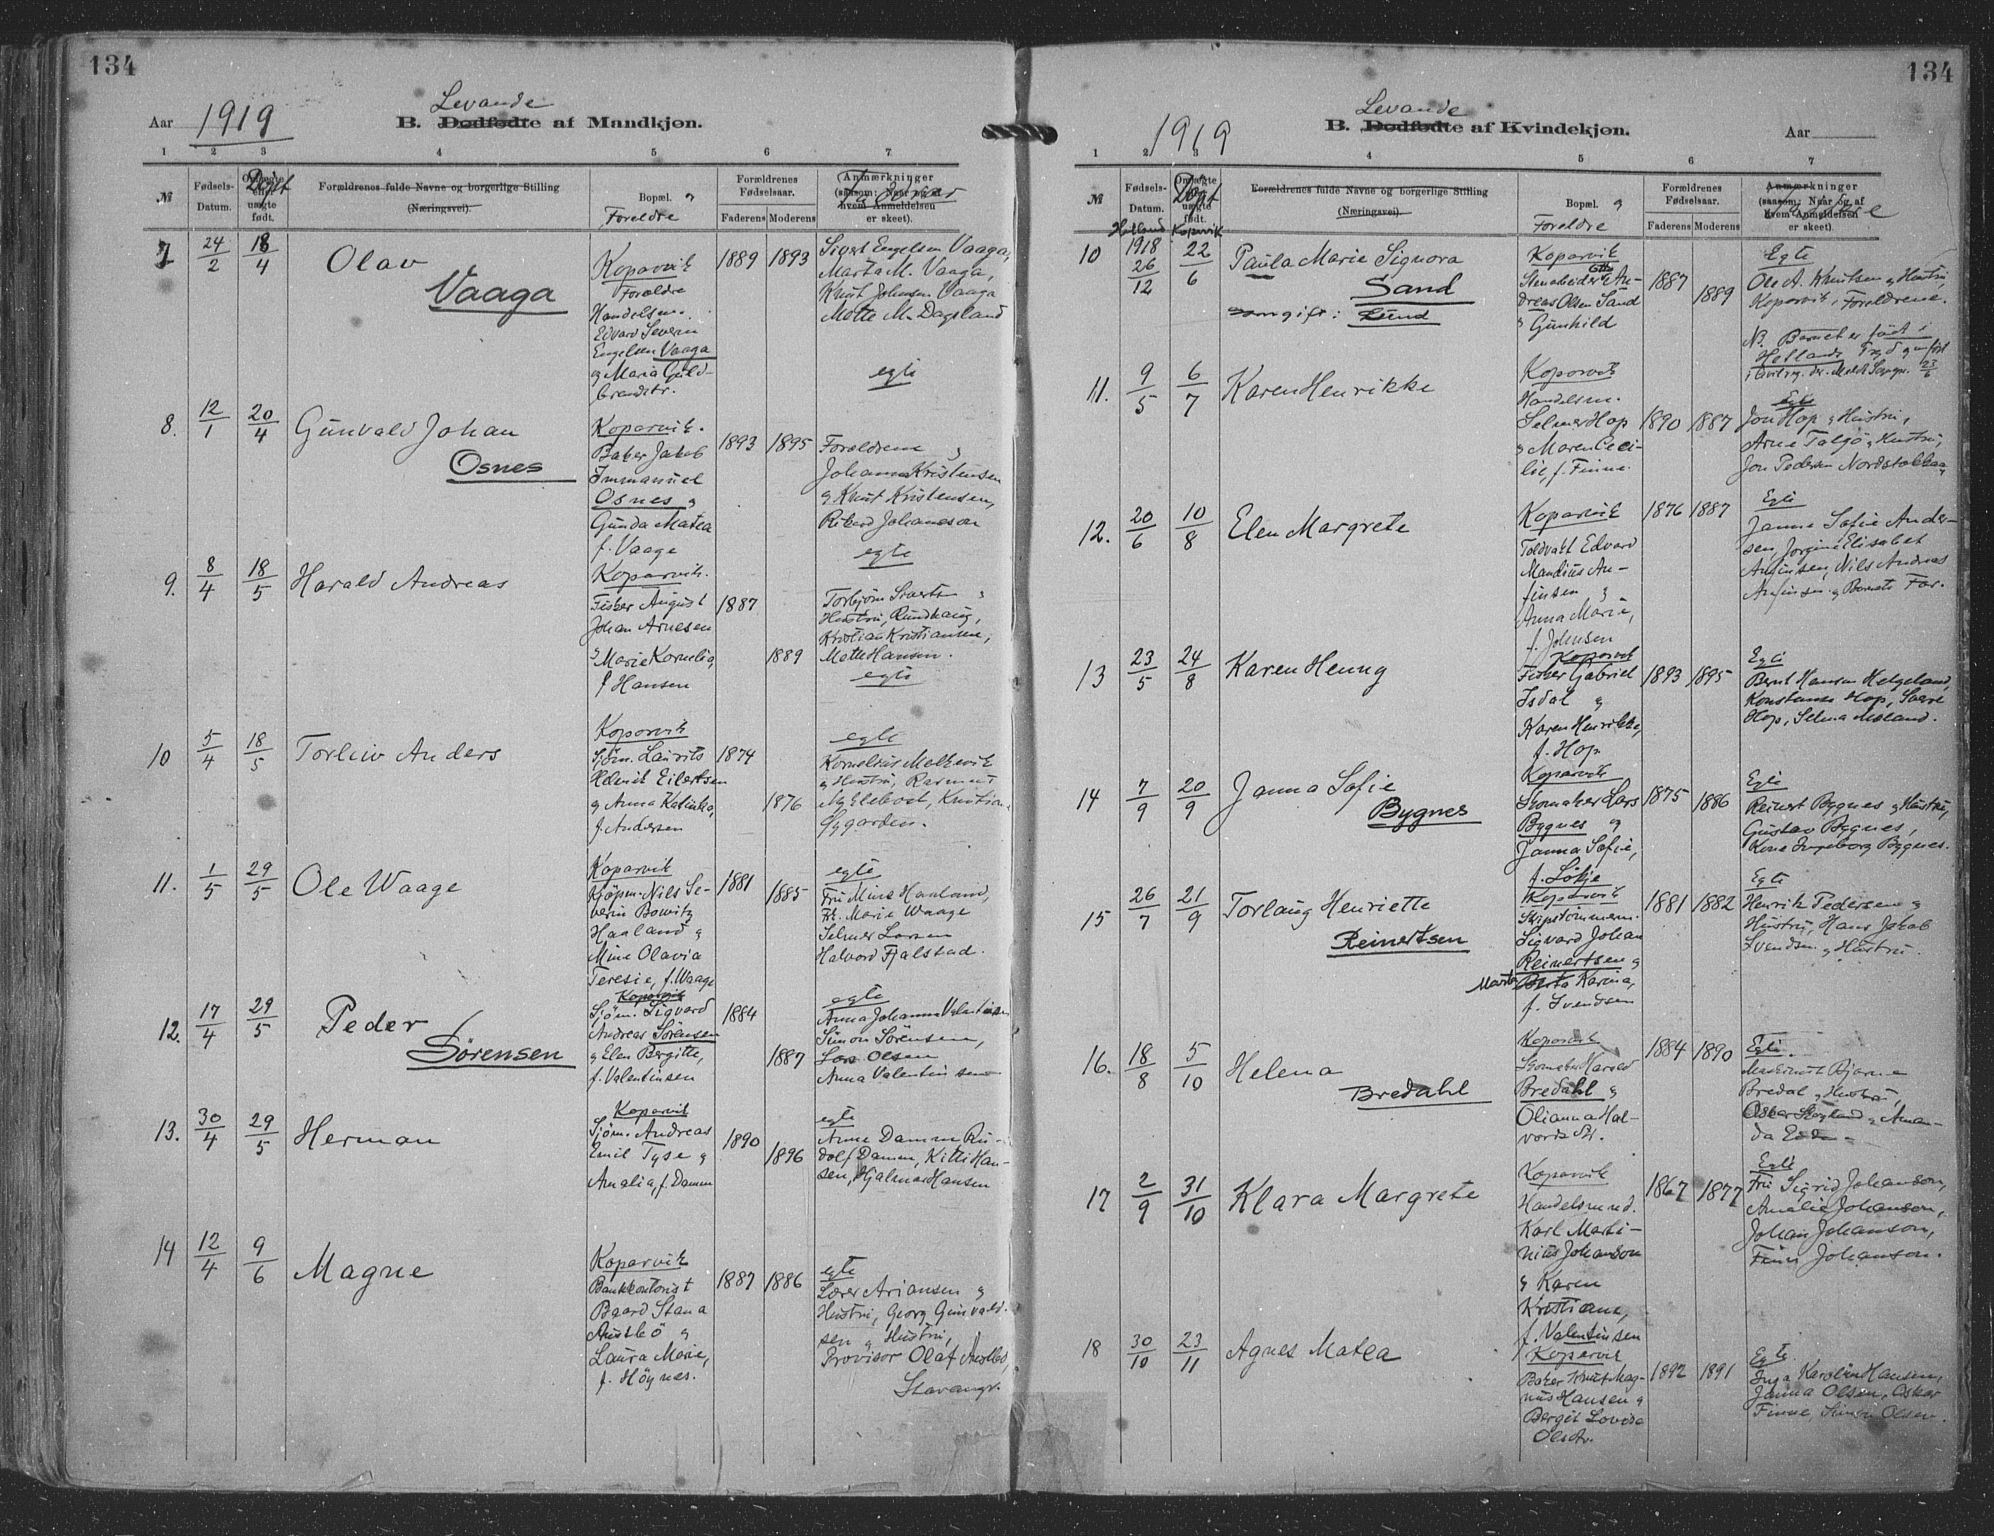 134
Aar 1919
Levande
B. Dødfødte af Mandkjøn.
1 2 3 4 5 6 7
№
Fødsels-Datum.
Døpt
Forældrenes fulde Navne og borgerlige Stilling
(Næringsvei).
Bopæl. og
Foreldre
Forældrenes
Fødselsaar.
Faderens Moderens
Anmærkninger
(saasom: Naar og af
hvem Anmeldelsen
er skeet).
Faddrar
7 24/2 18/4 Olav
Vaaga
Kopervik
Foreldre
Handelsm.
Edvard Severin
Engelsen Vaaga
og Maria Guld-
brandstr.
1889 1893
Sivert Engelsen Vaaga,
Marta M. Vaaga,
Knut Johansen Vaaga
Mette M. Dagsland
egte
8. 12/1 20/4 Gunvald Johan
Osnes
Kopervik.
Baker Jakob
Immanuel
Osnes og
Gunda Matea
f. Vaage
1893 1895
Foreldrene og
Johanna Kristensen
og Knut Kristensen,
Rikard Johanesen
egte
9. 8/4 18/5 Harald Andreas
Kopervik.
Fisker August
Johan Arnesen
og Marie Kornelia,
f Hansen
1887
1889
Torbjørn Sivertsen og
Hustru, Rundhaug,
Kristian Kristiansen,
Mette Hansen.
egte
10 5/4 18/5 Torleiv Anders
Kopervik
Sjøm. Laurits
Henrik Eilertsen
og Anna Katinka,
f. Andersen
1874
1876
egte
Kornelius Melkevik
og Hustru, Rasmus
Myklebost, Kristian
Øygarden.
11. 1/5 29/5 Ole Waage
Kopervik
Kjøpm. Nils Se-
verin Bowitz
Haaland og
Mine Olavia
Teresie, f. Waage
1881
1885
egte
Fru Mine Haaland,
Fr. Marie Waage
Selmer Larsen
Halvord Fjalstad.
12. 17/4 29/5 Peder
Sørensen
Kopervik
Sjøm. Sigvard
Andreas Sørensen
og Elen Bergitte,
f. Valentinsen
1884
1887
egte
Anna Johanna Valentinsen
Simon Sørensen,
Lars Olsen
Anna Valentinsen
13. 30/4 29/5 Herman
Kopervik
Sjøm. Andreas
Emil Tyse og
Amalia, f. Damm
1890
1896
egte
Anna Damm Ru-
dolf Damm, Kitti Han-
sen, Hjalmar Hansen
14 12/4 9/6 Magne
Kopervik
Bankkontorist
Baard Stana
Austbø og
Laura Marie,
f. Høynes.
1887 1886
egte
Lærer Ariansen og
Hustru, Georg Gunvald-
sen og Hustru,
Provisor Olaf
Stavanger.
134
1919
Levande
B. Dødfødte af Kvindekjøn.
Aar
1 2 3 4 5 6 7
№
Fødsels-
Datum.
Døpt
Forældrenes fulde Navne og borgerlige Stilling
(Næringsvei).
Bopæl. og
Foreldre
Forældrenes
Fødselsaar.
Faderens Moderens
Anmærkninger
(saasom: Naar og af
hvem Anmeldelsen
er skeet).
Hetland Kopervik
10 1918 26/12 22/6 Paula Marie Signora
Sand
som gift: Lund
Kopervik
Stenarbeider An-
dreas Olsen Sand
og Gunhild
1887
1889
Egte
Ole A. Knutsen og Hustru,
Kopervik, Foreldrene.
NB. Barnet er født i
Hetland
11. 9/5 6/7 Karen Henrikke
Kopervik
Handelsm.
Selmer Hop
og Maren Ceci-
lie, f. Finne.
1890 1887
Egte
Jon Hop og Hustru,
Arne Talgø og Hustru,
Jon Pedersen Nordstokka
12. 20/6 10/8 Elen Margrete
Kopervik
Toldvakt Edvard
Mandius An-
finsen og
Anna Marie,
f. Johnsen
1876 1887
Egte
Janna Sofie Ander-
sen, Jorgine Elisabet
Anfinsen, Nils Andreas
Anfinsen og Barnets Far.
13 23/5 24/8 Karen Henny
Kopervik
Fisker Gabriel
Isdal og
Karen Henrikke,
f. Hop
1893 1895
Egte
Bernt Hansen Helgeland,
Konstanse Hop, Sverre
Hop, Selma Moland.
14 7/9 20/9 Janna Sofie
Bygnes
Kopervik
Skomaker Lars
Bygnes og
Janna Sofie,
f.Løkje
1875 1886
Egte
Reinert Bygnes og Hustru,
Gustav Bygnes,
Kone Ingeborg Bygnes.
15 26/7 21/9 Torlaug Henriette
Reinertsen
Kopervik
Skipstømmerm.
Sigvard Johan
Reinertsen og
Marta Berta Karina,
f. Svendsen
1881 1882
Egte
Henrik Pedersen og
Hustru, Hans Jakob
Svendsen og Hustru.
16. 18/8 5/10 Helena
Bredahl
Kopervik
Skomaker Harald
Bredahl og
Olianna Hal-
vordstr.
1884 1890
Egte.
Bjarne
Bredal og Hustru,
Oskar Skogland og Aman-
da
17 2/9 31/10 Klara Margrete
Kopervik
Handelsmand.
Karl Marti-
nius Johanson
og Karen
Kristiane,
f. Valentinsen
1867 1877
Egte
Fru Sigrid Johanson,
Amalie Johanson,
Johan Johanson,
Finn Johanson.
18 30/10 23/11 Agnes Matea
Kopervik
Baker Knut Mag-
nus Hansen og
Bergit Lovise
Olsdtr.
1892 1891
Egte
Inga Karoline Hansen,
Janna Olsen, Oskar
Finne, Simon Olsen.